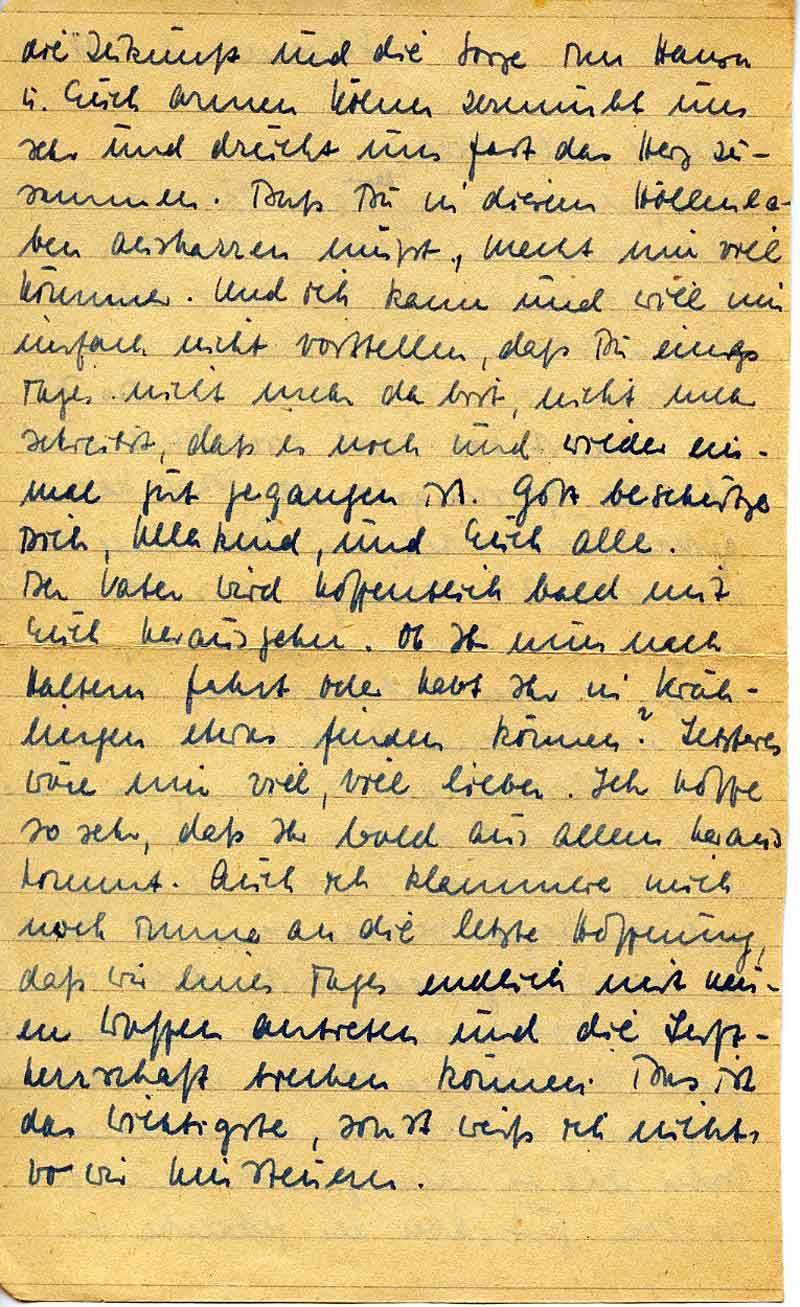 die Zukunft und die Sorge um Hansu
u. Euch armen Kölner zermürbt uns
sehr und drückt uns fast das Herz zu-
sammen. Daß Du in diesem Höllenle-
ben ausharren mußt, macht mir viel
Kummer. Und ich kann und will mir
einfach nicht vorstellen, daß Du eines
Tages nicht mehr da bist, nicht mehr
schreibst, daß es noch und wieder ein-
mal gut gegangen ist. Gott beschütze
Dich, und Euch alle.
Der Vater wird hoffentlich bald mit
Euch herausgehn. Ob Ihr nun nach
Haltern fahrt oder habt Ihr in Kräh-
lingen etwas finden können? Letzteres
wäre mir viel, viel lieber. Ich hoffe
so sehr, daß Ihr bald aus allem heraus
kommt. Auch ich klammere mich
noch immer an die letzte Hoffnung,
daß wir eines Tages endlich mit neu-
en Waffen antreten und die Luft-
herrschaft brechen können. Das ist
das Wichtigste, sonst weiß ich nicht
wo wir hinsteuern.